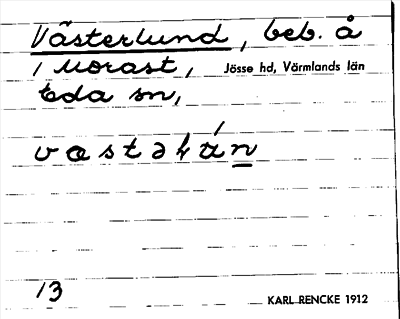 Västerlund, beb. å
1 Morast, Jösse hd, Värmlands län
Eda sn,
13
KARL RENCKE 1912